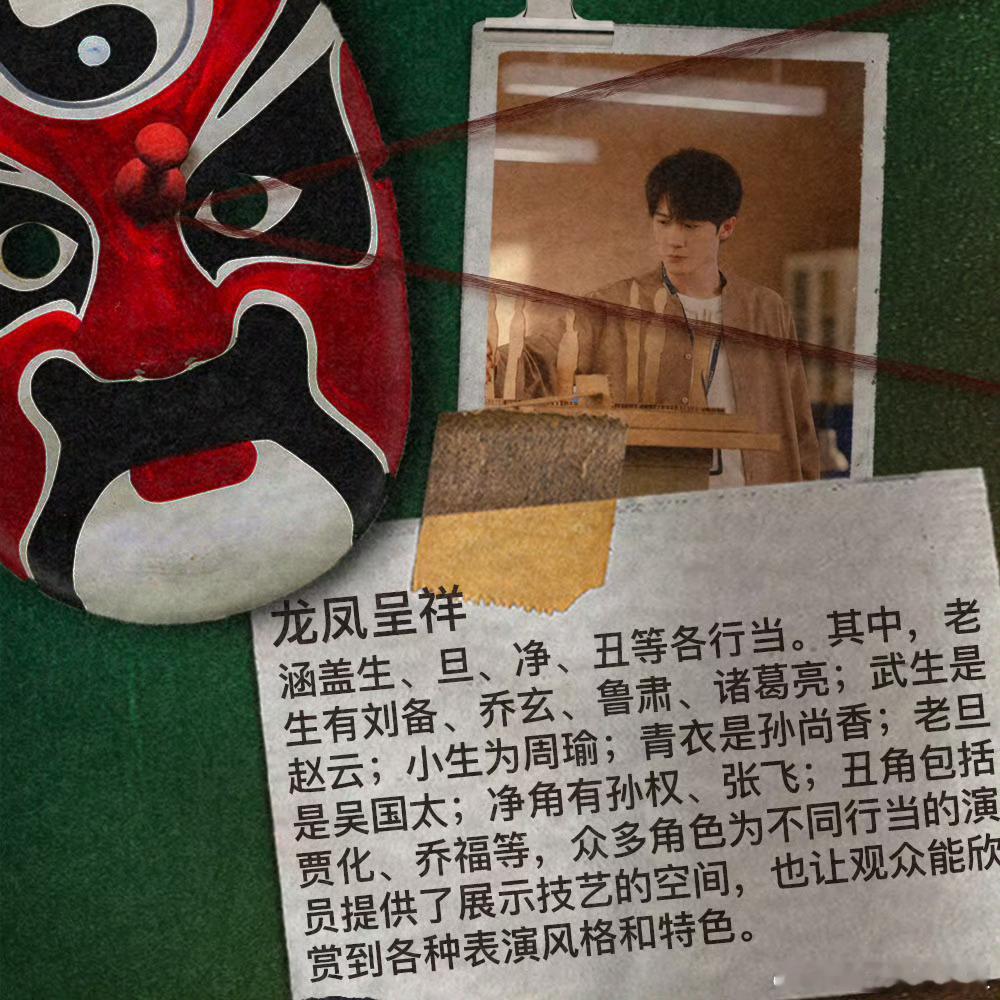 龙凤呈祥
涵盖生、旦、净、丑等各行当。其中，老
生有刘备、乔玄、鲁肃、诸葛亮；武生是
赵云；小生为周瑜；青衣是孙尚香；老旦
是吴国太；净角有孙权、张飞；丑角包括
贾化、乔福等，众多角色为不同行当的演
员提供了展示技艺的空间，也让观众能欣
赏到各种表演风格和特色。